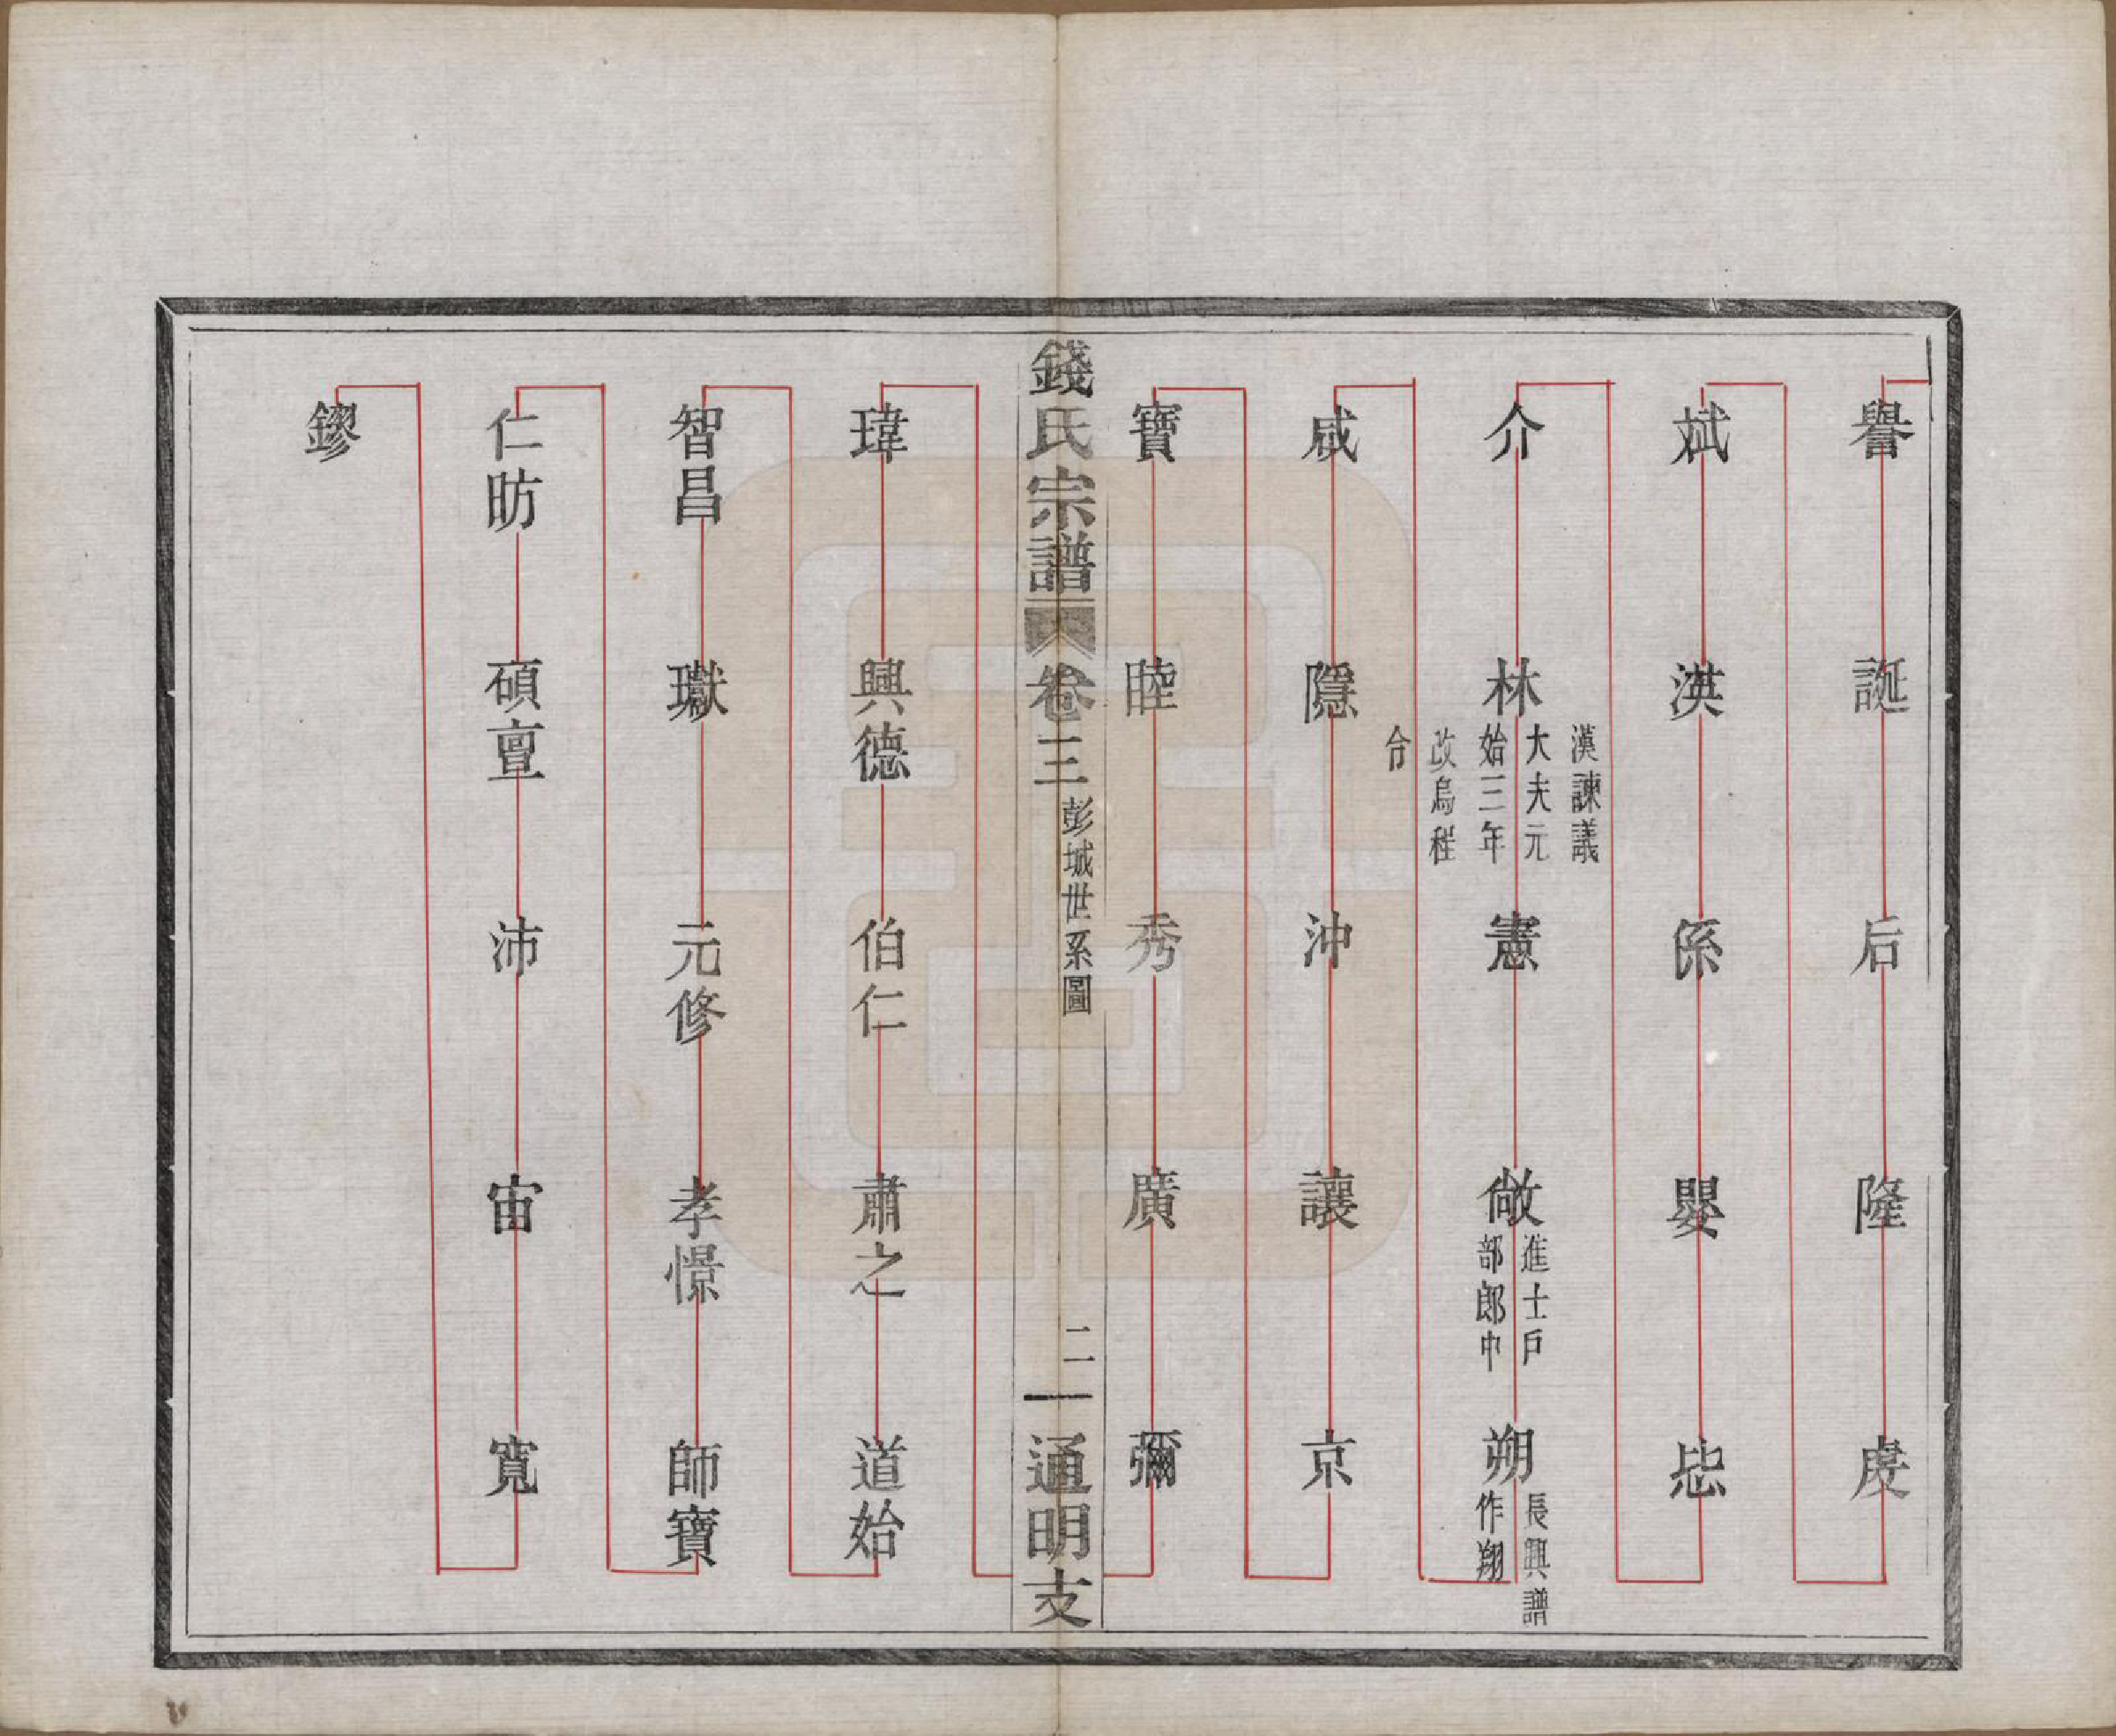 譽 誕 后 隆 虔
斌 漢 係 嬰 毖
介 林 漢諫議
大夫元
始三年
改烏程
令 憲 敞 進士戶
部郎中 朔 長興譜
作翔
咸 隱 沖 讓 京
寶 睦 秀 廣 彌
錢氏宗譜 卷三 彭城世系圖 二 通明支
瑋 興德 伯仁 肅之 道始
智昌 瓛 元修 孝憬 師寶
仁昉 碩亶 沛 宙 寬
鏐